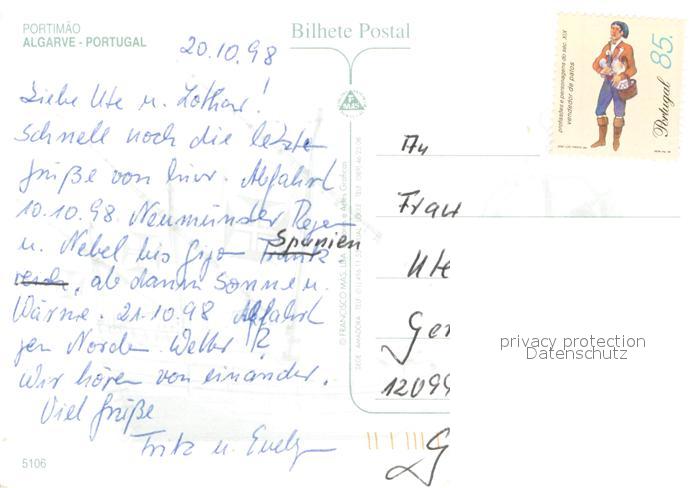 PORTIMÃO
ALGARVE - PORTUGAL
Bilhete Postal
20.10.98
Liebe Ute u. Lothar!
Schnell noch die letzten
Grüße von hier. Abfahrt
10.10.98 Neumünster Regen
u. Nebel bis Gijon Spanien
, ab dann Sonne u.
Wärme. 21.10.98 Abfahrt
gen Norden. Wetter ?
Wir hören von einander.
Viel Grüße
Fritz u. Evelyn
5106
© FRANCISCO MAS, LDA
MAS
profissões e personagens do séc. XIX
vendedor de patos
Portugal 85.
An
Frau
Ute
Ger
12099
privacy protection
Datenschutz